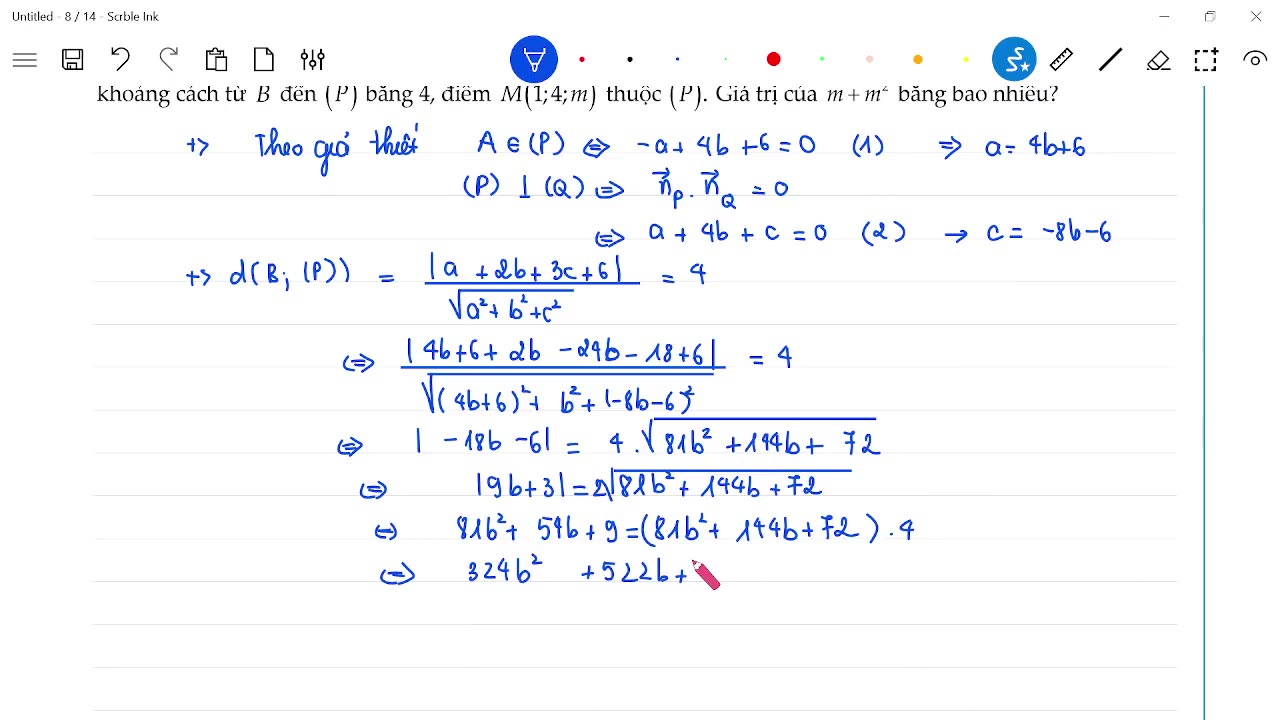 Untitled - 8 / 14 - Scrble Ink
khoảng cách từ B đến (P) bằng 4, điểm M(1;4;m) thuộc (P). Giá trị của m + m² bằng bao nhiêu?
+> Theo giả thiết A ∈ (P) ⇔ -a + 4b + 6 = 0 (1) ⇒ a = 4b+6
(P) ⊥ (Q) ⇔ n⃗_P . n⃗_Q = 0
⇔ a + 4b + c = 0 (2) → c = -8b-6
+> d(B; (P)) = |a + 2b + 3c + 6| / √(a² + b² + c²) = 4
⇔ |4b+6 + 2b - 24b - 18 + 6| / √((4b+6)² + b² + (-8b-6)²) = 4
⇔ |-18b - 6| = 4 . √(81b² + 144b + 72)
⇔ |9b + 3| = 2√(81b² + 144b + 72)
⇔ 81b² + 54b + 9 = (81b² + 144b + 72) . 4
⇔ 324b² + 522b +